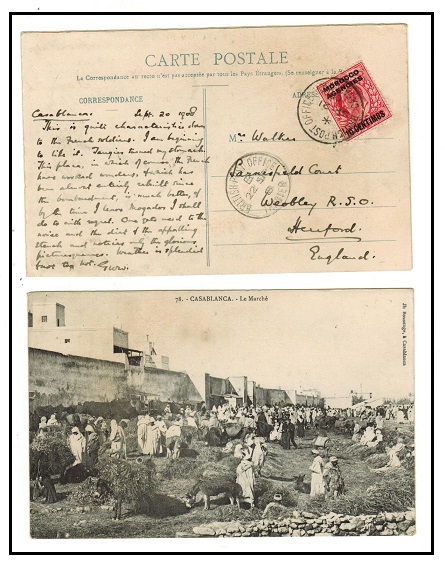 CARTE POSTALE
La Correspondance au recto n'est pas acceptée par tous les Pays Etrangers. (Se renseigner à la
CORRESPONDANCE
ADRESSE
MOROCCO
AGENCIES
10 CENTIMOS
BRITISH POST OFFICE
Casablanca. Sept. 20 1908
This is quite characteristic down
to the French soldiers. I am beginning
to like it. Tangier turned my stomach.
This place, in which of course the French
have worked wonders, & which has
been almost entirely rebuilt since
the bombardment, is much better, &
by the time I leave Mogador I shall
do so with regret. One gets used to the
noise and the dirt & the appalling
stench and notices only the glorious
picturesqueness. Weather is splendid
& not too hot.
Mrs Walker
Sarnesfield Court
Weobley R.S.O.
Hereford.
England.
78. - CASABLANCA. - Le Marché
à Casablanca